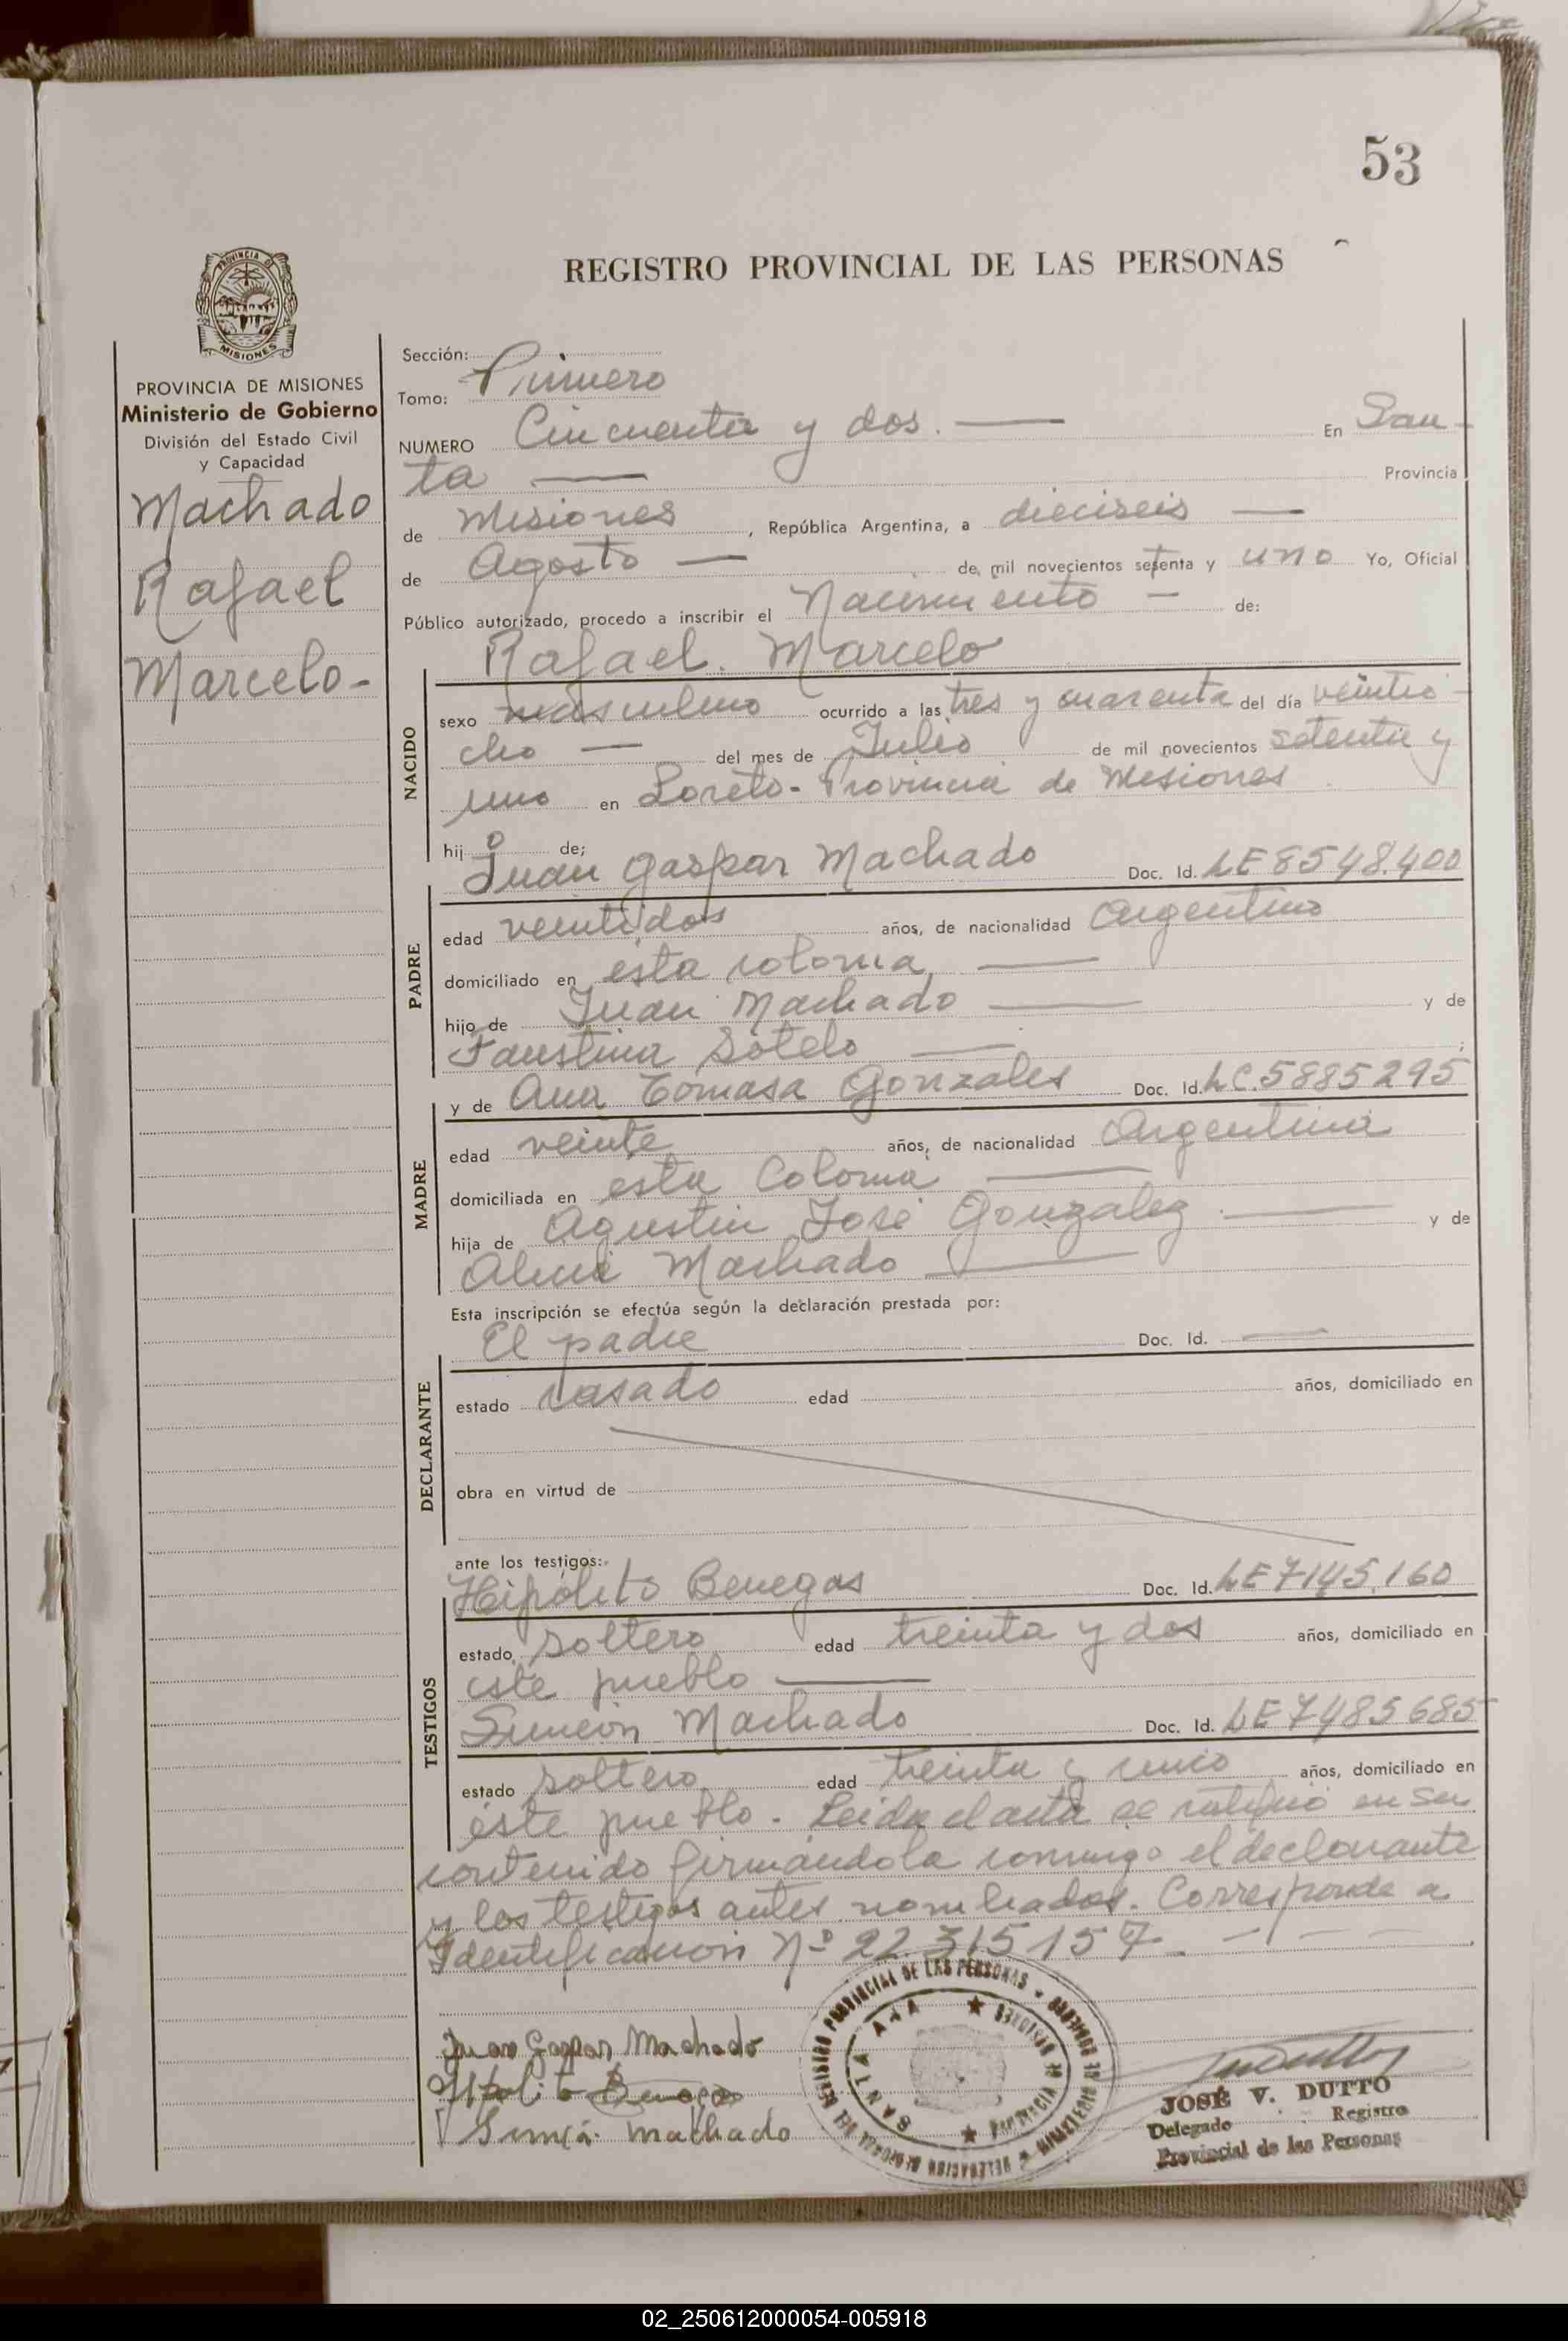 53
REGISTRO PROVINCIAL DE LAS PERSONAS
PROVINCIA DE MISIONES
MISIONES
PROVINCIA DE MISIONES
Ministerio de Gobierno
División del Estado Civil
y Capacidad
Machado
Rafael
Marcelo-
Sección:
Tomo: Primero
NUMERO Cincuenta y dos. — En San-
ta — Provincia
de Misiones, República Argentina, a dieciseis —
de Agosto — de mil novecientos setenta y uno Yo, Oficial
Público autorizado, procedo a inscribir el Nacimiento — de:
Rafael. Marcelo
NACIDO
sexo masculino ocurrido a las tres y cuarenta del día veintio-
cho — del mes de Julio de mil novecientos setenta y
uno en Loreto- Provincia de Misiones
hijo de;
Juan Gaspar Machado Doc. Id. LE 8548.400
PADRE
edad veintidos años, de nacionalidad Argentino
domiciliado en esta colonia, —
hijo de Juan Machado — y de
Faustina Sotelo — ;
y de Ana Tomasa Gonzales Doc. Id. LC.5885295
MADRE
edad veinte años, de nacionalidad Argentina
domiciliada en esta Colonia —
hija de Agustin José Gonzalez — y de
Alicia Machado —
Esta inscripción se efectúa según la declaración prestada por:
El padre Doc. Id. —
DECLARANTE
estado casado edad años, domiciliado en
obra en virtud de
ante los testigos:
Hipólito Benegas Doc. Id. LE 7145.160
TESTIGOS
estado soltero edad treinta y dos años, domiciliado en
este pueblo —
Simeón Machado Doc. Id. LE 7485685
estado soltero edad treinta y años, domiciliado en
éste pueblo. Leida el acta se ratificó en su
contenido firmándola conmigo el declarante
y los testigos antes nombrados. Corresponde a
Identificación Nº 22.315157. — — —
Juan Gaspar Machado
Machado
SANTA ANA
PROVINCIA DE MISIONES
JOSÉ V. DUTTO
Delegado Registro
Provincial de las Personas
02_250612000054-005918